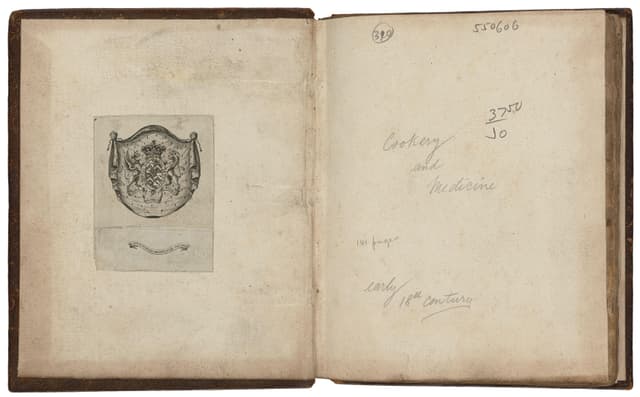 390
550606
3750
10
Cookery
and
Medicine
141 pages
early
18th century